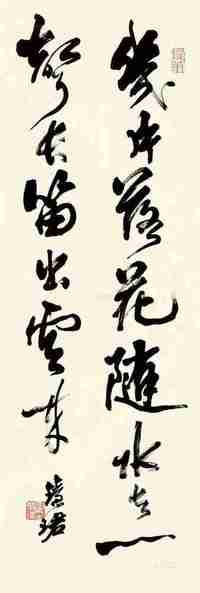 几片落花随水去一
声长笛出云来